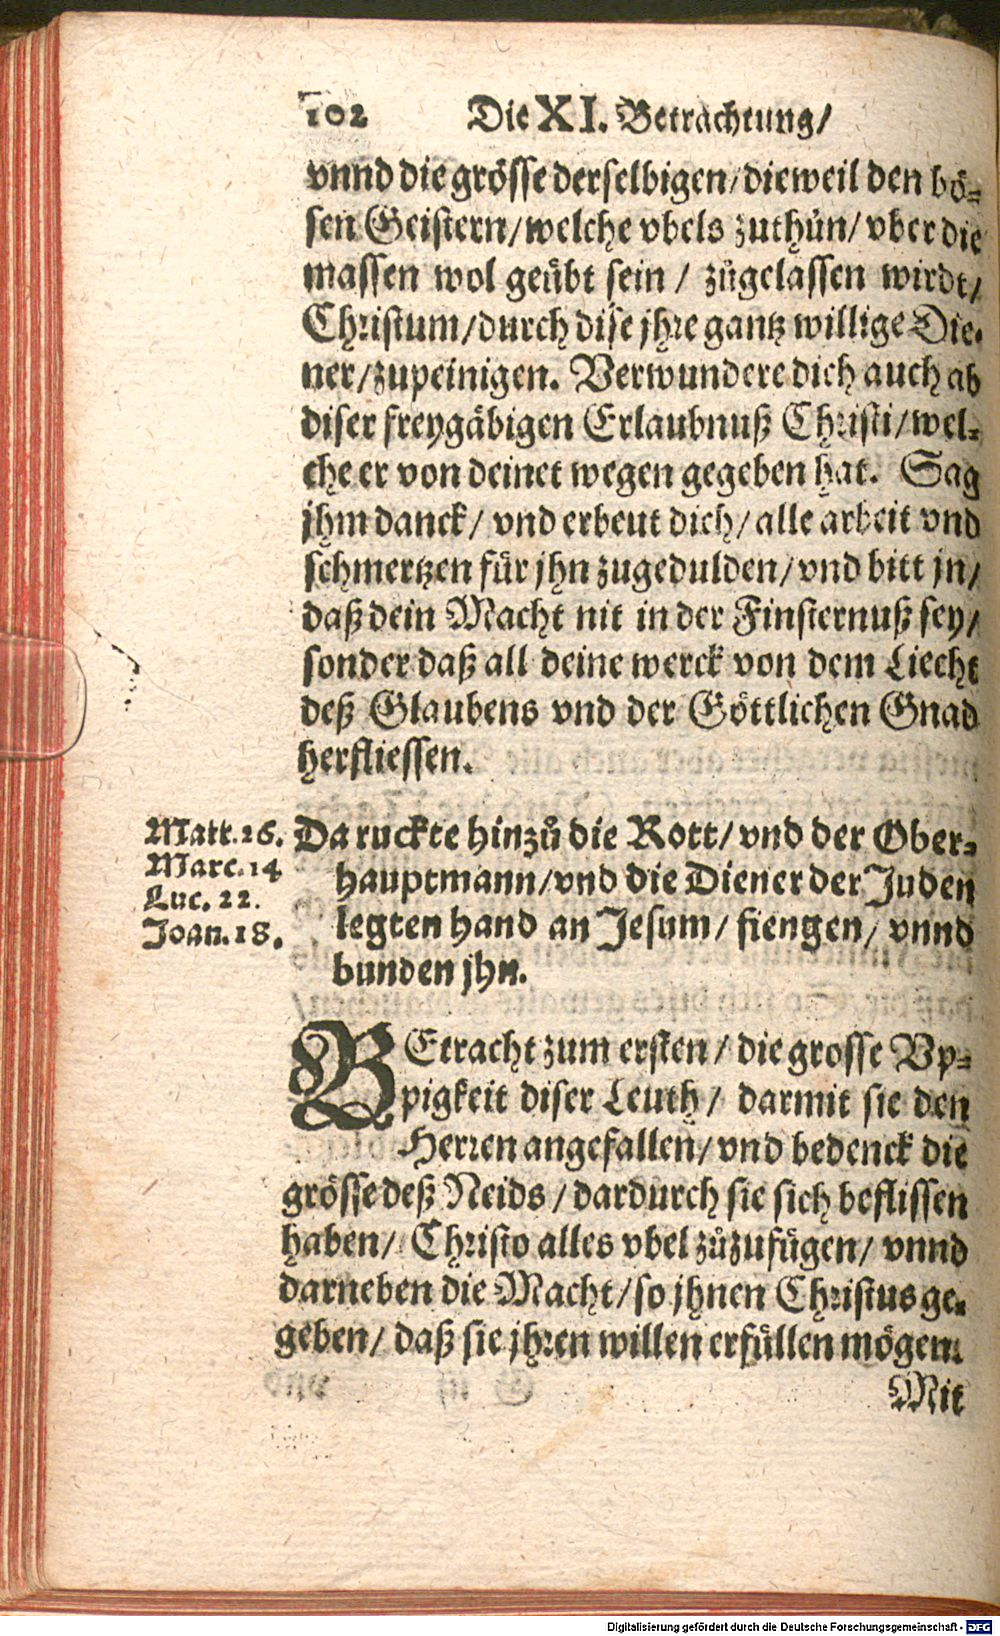 102 Die XI. Betrachtung/
vnnd die grösse derselbigen/dieweil den bö-
sen Geistern/welche vbels zuthůn/ vber die
massen wol geübt sein / zůgelassen wirdt/
Christum/durch dise jhre gantz willige Die-
ner/zupeinigen. Verwundere dich auch ab
diser freygäbigen Erlaubnuß Christi/wel-
che er von deinet wegen gegeben hat. Sag
jhm danck/ vnd erbeut dich/ alle arbeit vnd
schmertzen für jhn zugedulden/vnd bitt jn/
daß dein Macht nit in der Finsternuß sey/
sonder daß all deine werck von dem Liecht
deß Glaubens vnd der Göttlichen Gnad
herfliessen.
Matt.26.
Marc.14
Luc. 22.
Joan.18.
Da ruckte hinzů die Rott/ vnd der Ober-
hauptmann/vnd die Diener der Juden
legten hand an Jesum/ fiengen/ vnnd
bunden jhn.
BEtracht zum ersten / die grosse Vp-
pigkeit diser Leuth/ darmit sie den
Herren angefallen/ vnd bedenck die
grösse deß Neids / dardurch sie sich beflissen
haben/ Christo alles vbel zůzufügen/ vnnd
darneben die Macht/so jhnen Christus ge-
geben/ daß sie jhren willen erfüllen mögen.
Mit
Digitalisierung gefördert durch die Deutsche Forschungsgemeinschaft - DFG